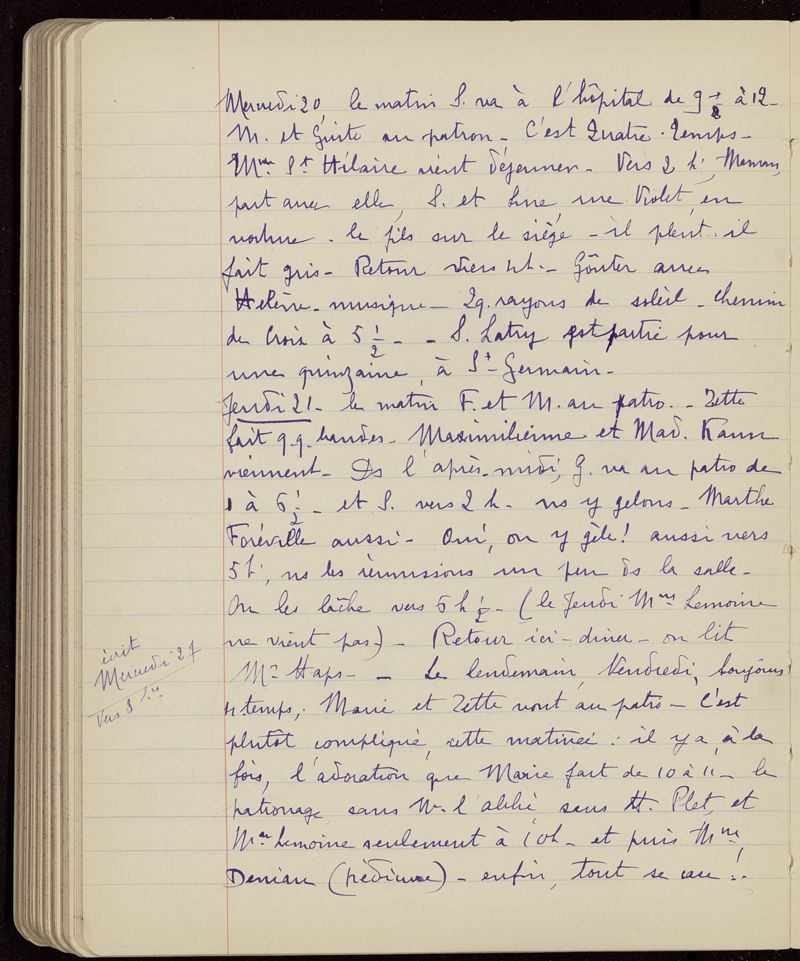 Mercredi 20, le matin S. va à l'hôpital de 9 1/2 à 12 -
M. et Guite au patron - C'est Quatre-Temps -
Mme St Hilaire vient déjeuner - Vers 2 h, Maman,
part avec elle, S. et une Violet, en
voiture. le fils sur le siège - il pleut. il
fait gris - Retour vers 4h. - Goûter avec
Hélène - musique - 2q. rayons de soleil - chemin
de Croix à 5 1/2 - - S. Latry est partie pour
une quinzaine, à St-Germain -
Jeudi 21 - le matin F. et M. au patro. - Zette
fait q.q. bandes - Maximilienne et Mad. Kann
viennent - Ds l'après-midi, G. va au patro de
1 à 6 1/2 - et S. vers 2 h. - ns y gelons - Marthe
Foréville aussi - Oui, on y gèle! aussi vers
5h, ns les réunissons un peu ds la salle -
On les lâche vers 6 h 1/2 - (le Jeudi Mme Lemoine
ne vient pas) - Retour ici - diner - on lit
Mr Haps - - Le lendemain, Vendredi, toujours
4 temps, Marie et Zette vont au patro - C'est
plutôt compliqué, cette matinée : il y a, à la
fois, l'adoration que Marie fait de 10 à 11 - le
patronage, sans M. l'abbé, sans H. Plet, et
Mme Lemoine seulement à 10h - et puis Mme
Deniau (pédicure) - enfin, tout se case !.
écrit
Mercredi 27
vers 8 h